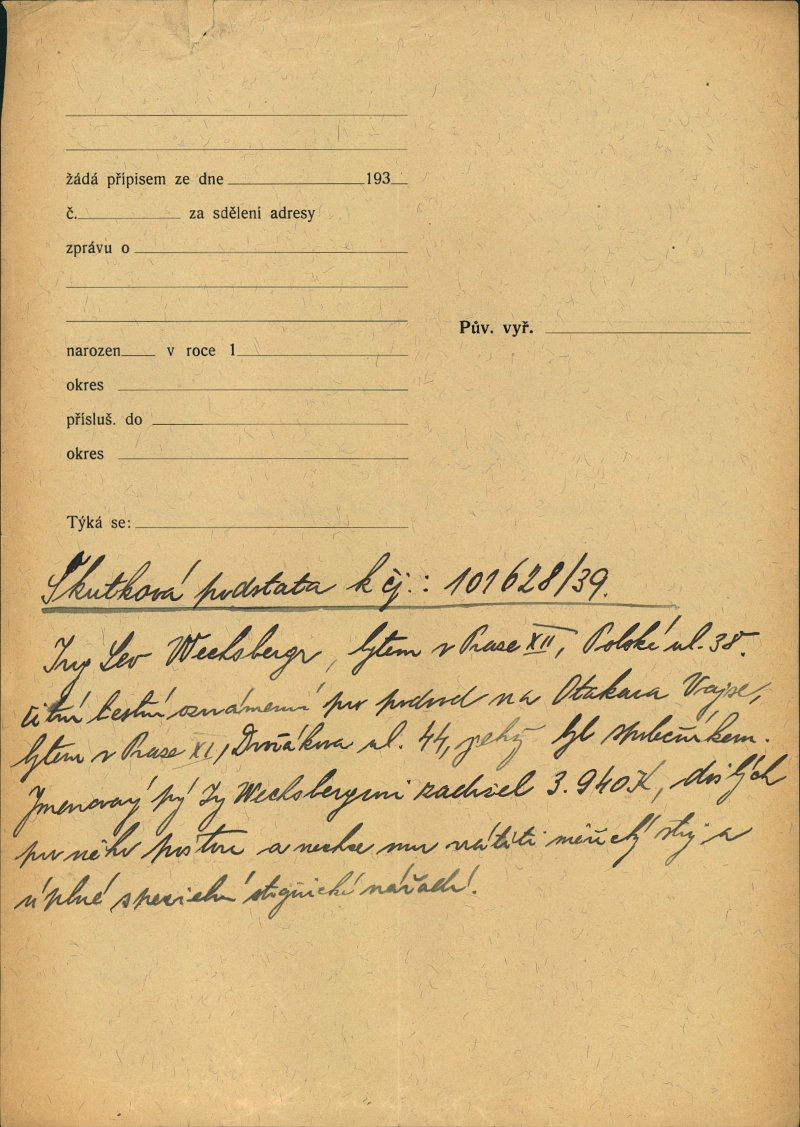 žádá přípisem ze dne 193
č. za sdělení adresy
zprávu o
Pův. vyř.
narozen v roce 1
okres
přísluš. do
okres
Týká se:
Skutková podstata k čj.: 101628/39.
Ing Lev Wechsbergr, bytem v Praze XII, Polská ul. 38.
činí trestní oznámení pro podvod na Otakara Vajse,
bytem v Praze XI, Dvořákova ul. 44, jehož byl společníkem.
Jmenovaný prý Ing Wechsbergrovi zadržel 3.940 K, došlých
pro něho poštou a nechce mu vrátiti měřický stroj a
úplné specielní nářadí.